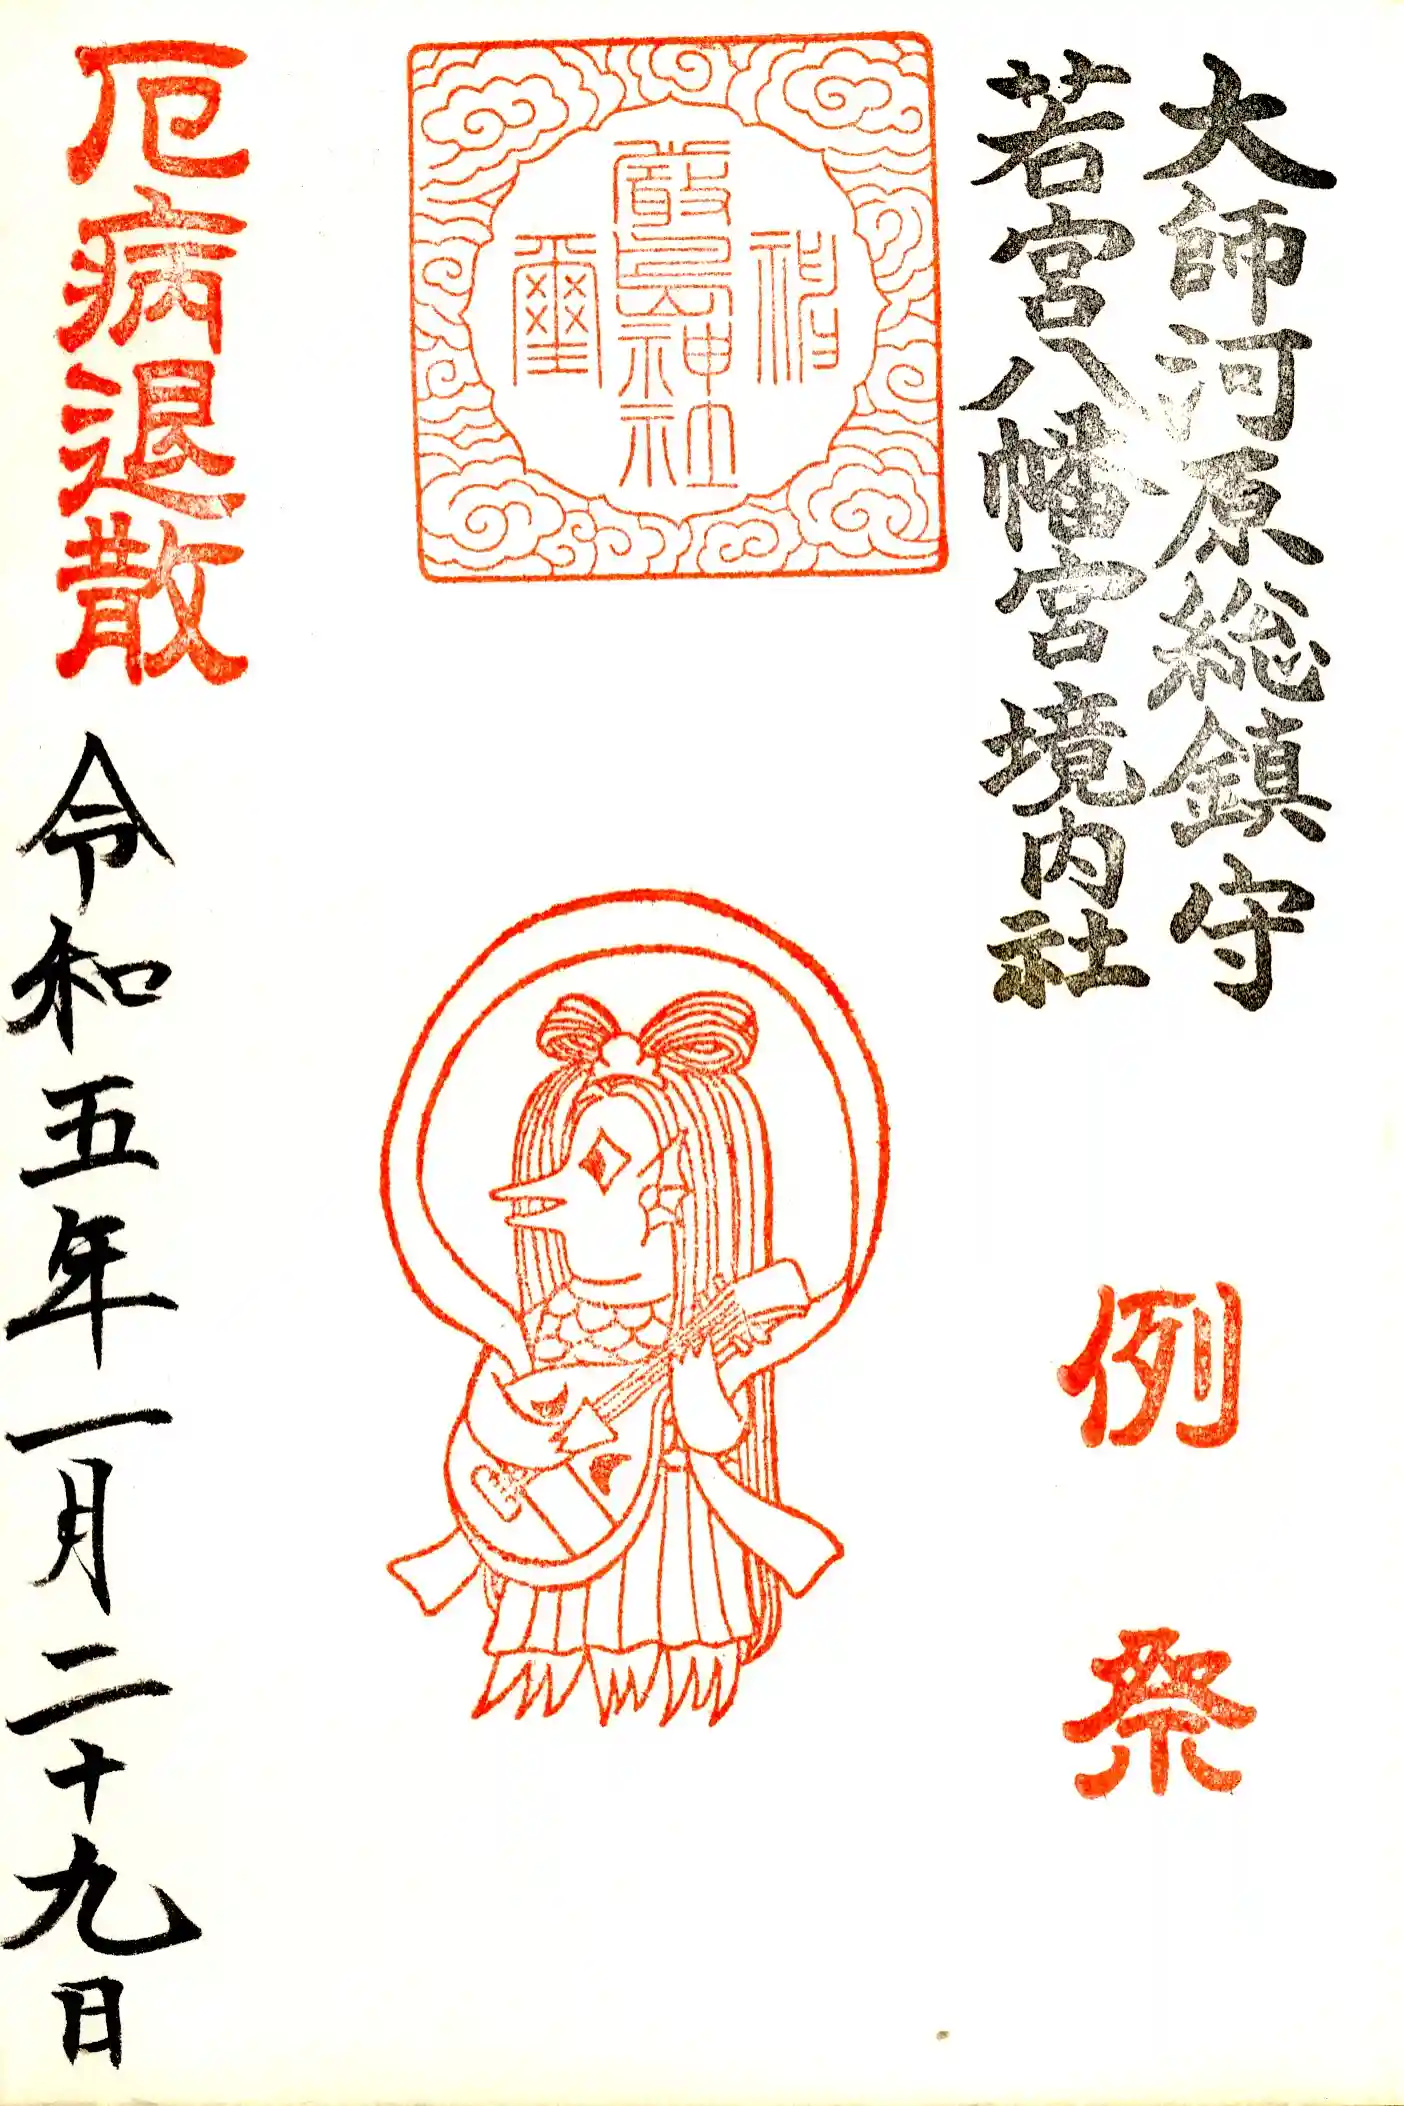 大師河原総鎮守
若宮八幡宮境内社
例祭
厳島神社
璽
厄病退散
令和五年一月二十九日